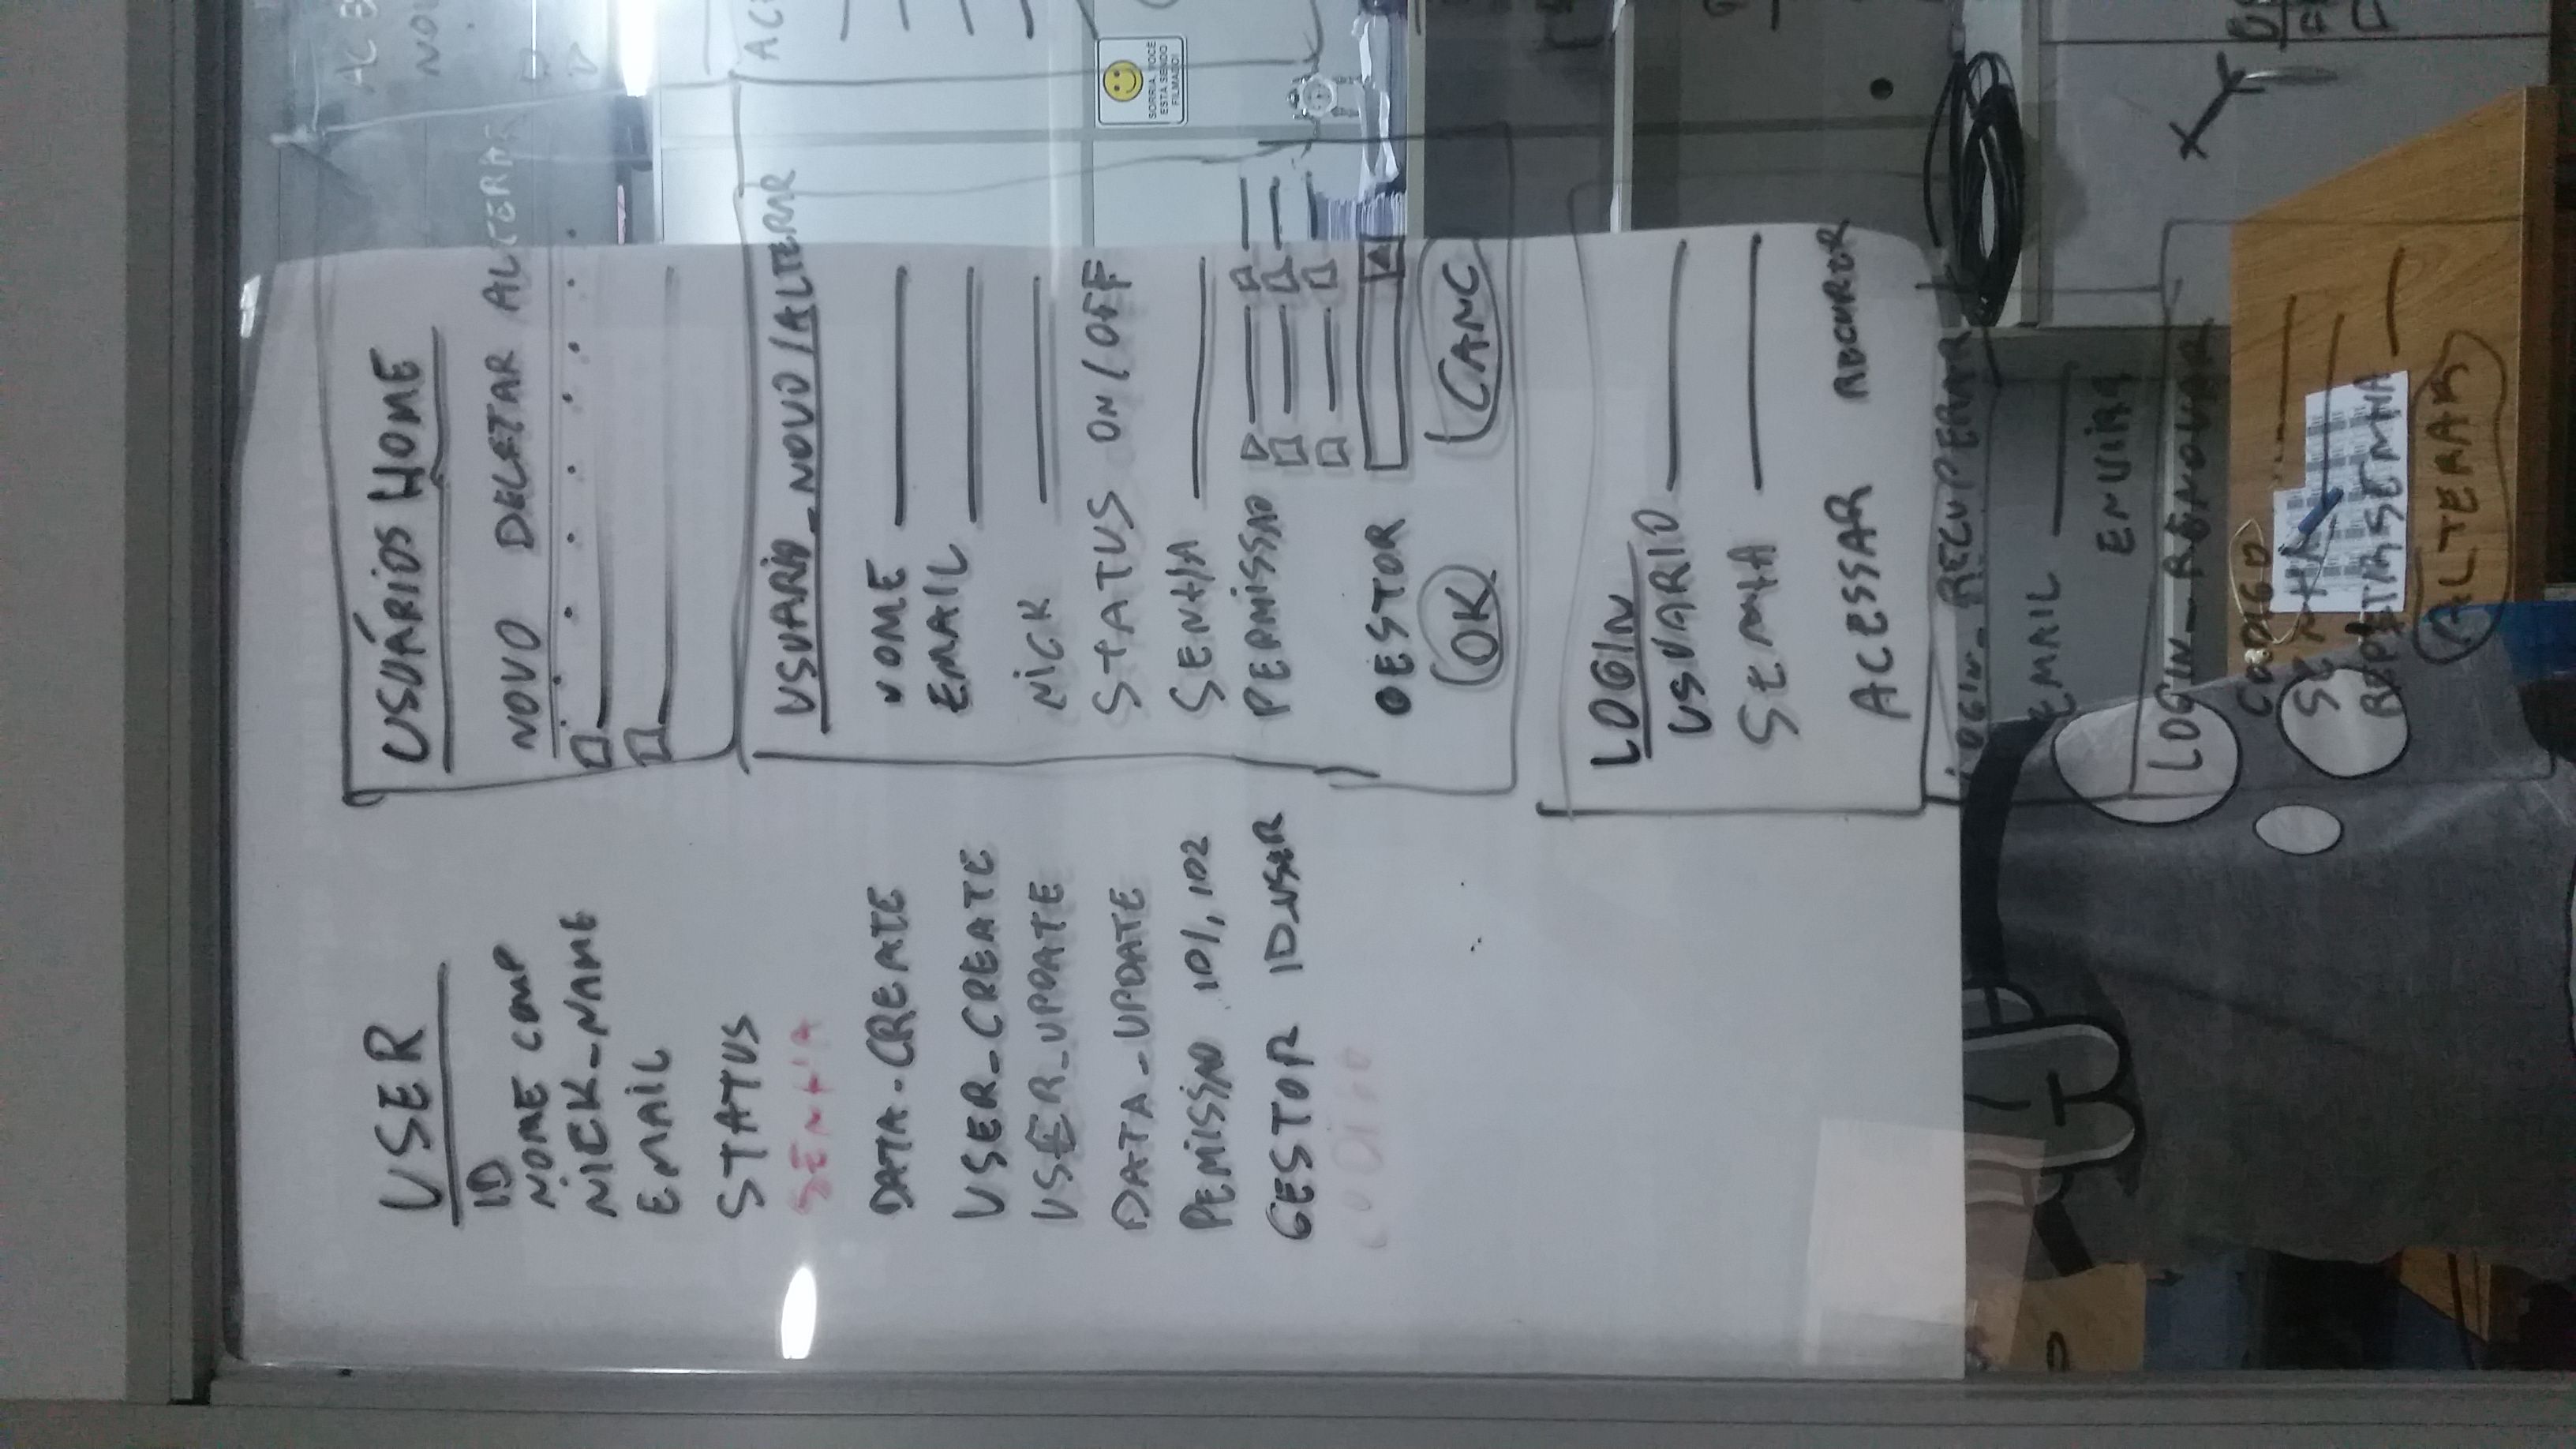 USER
ID
NOME COMP
NICK_NAME
EMAIL
STATUS
SENHA
DATA-CREATE
USER_CREATE
USER_UPDATE
DATA_UPDATE
PEMISSAO ID1, ID2
GESTOR ID_USER
CODIGO
USUÁRIOS HOME
NOVO DELETAR ALTERAR
USUARIO_NOVO/ALTERAR
NOME
EMAIL
NICK
STATUS ON/OFF
SENHA
PERMISSAO
GESTOR
OK CANC
LOGIN
USUARIO
SENHA
ACESSAR RECURER
LOGIN_RECUPERAR
EMAIL
ENVIAR
LOGIN_RENOVAR
CODIGO
SENHA
REPETIR SENHA
ALTERAR
SORRIA, VOCÊ
ESTÁ SENDO
FILMADO!